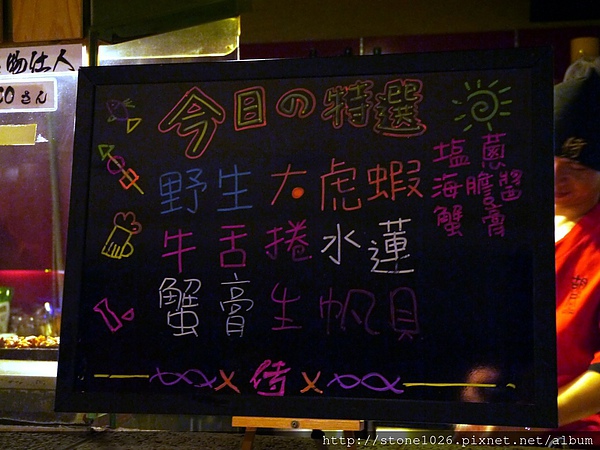 今日の特選
野生大虎蝦
牛舌捲水蓮
蟹膏生帆貝
蔥鹽膽膏
塩海蟹
侍
物仕人
さん
http://stone1026.pixnet.net/album